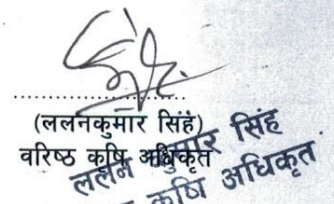 (ललनकुमार सिंह)
वरिष्ठ कृषि अधिकृत
ललन कुमार सिंह
कृषि अधिकृत